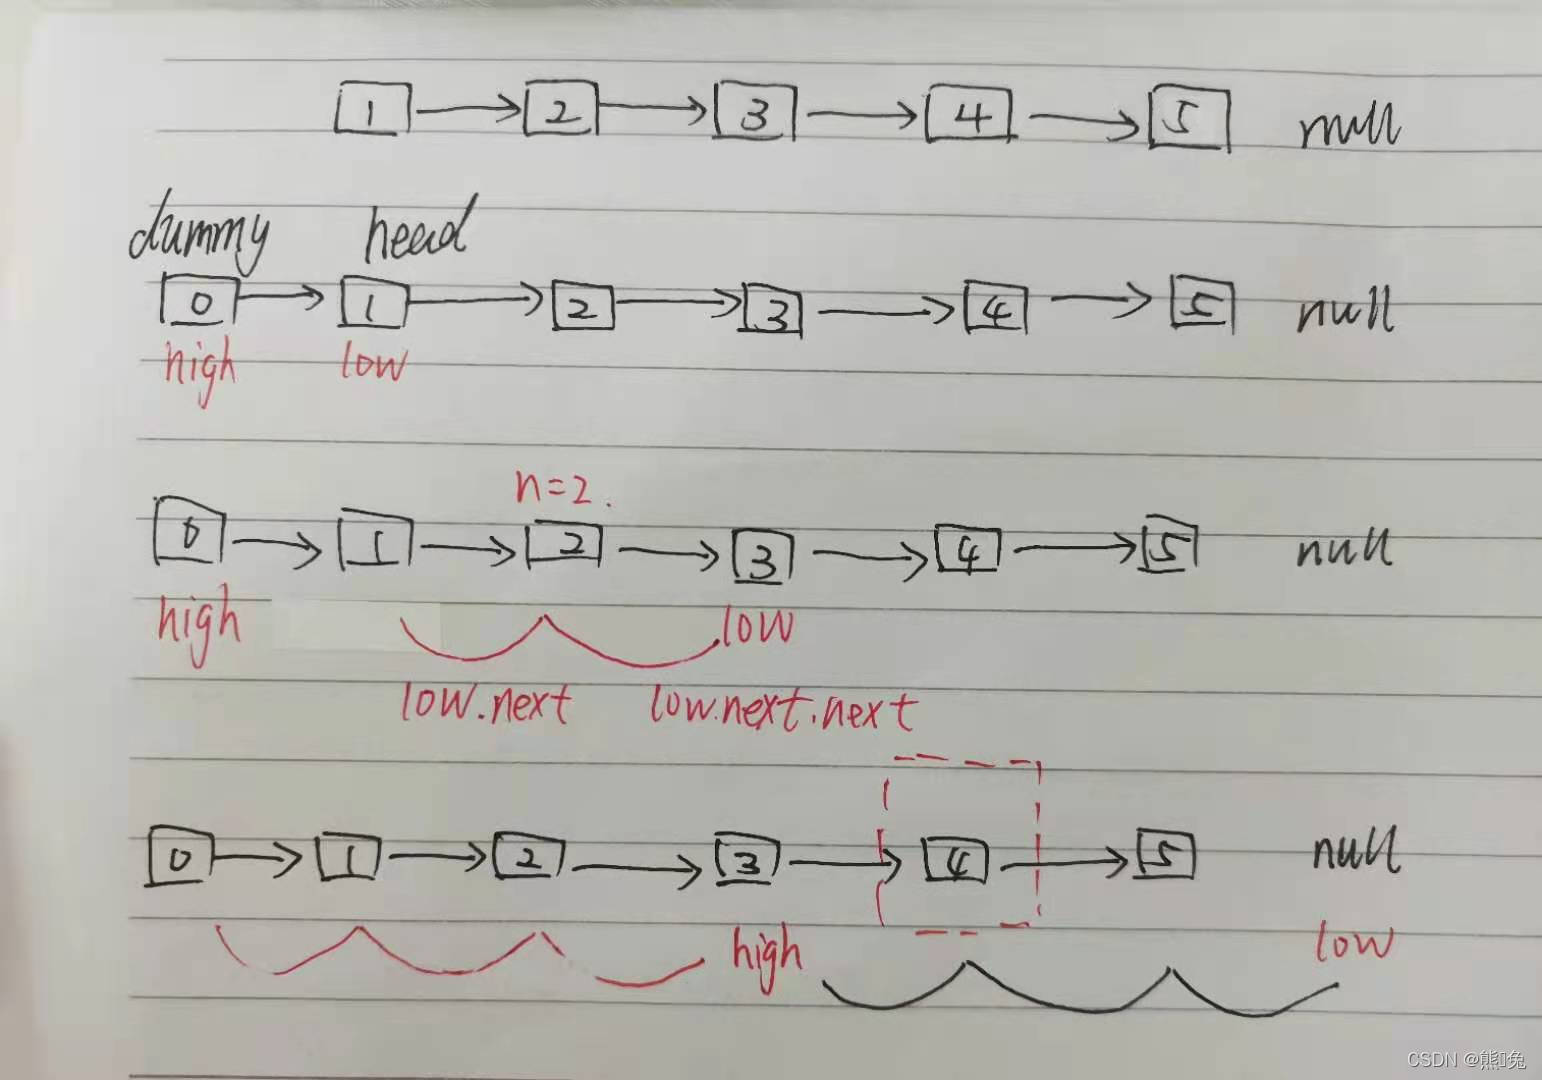 1 → 2 → 3 → 4 → 5 null
dummy head
0 → 1 → 2 → 3 → 4 → 5 null
high low
n=2.
0 → 1 → 2 → 3 → 4 → 5 null
high low
low.next low.next.next
0 → 1 → 2 → 3 → 4 → 5 null
high low
CSDN @熊兔